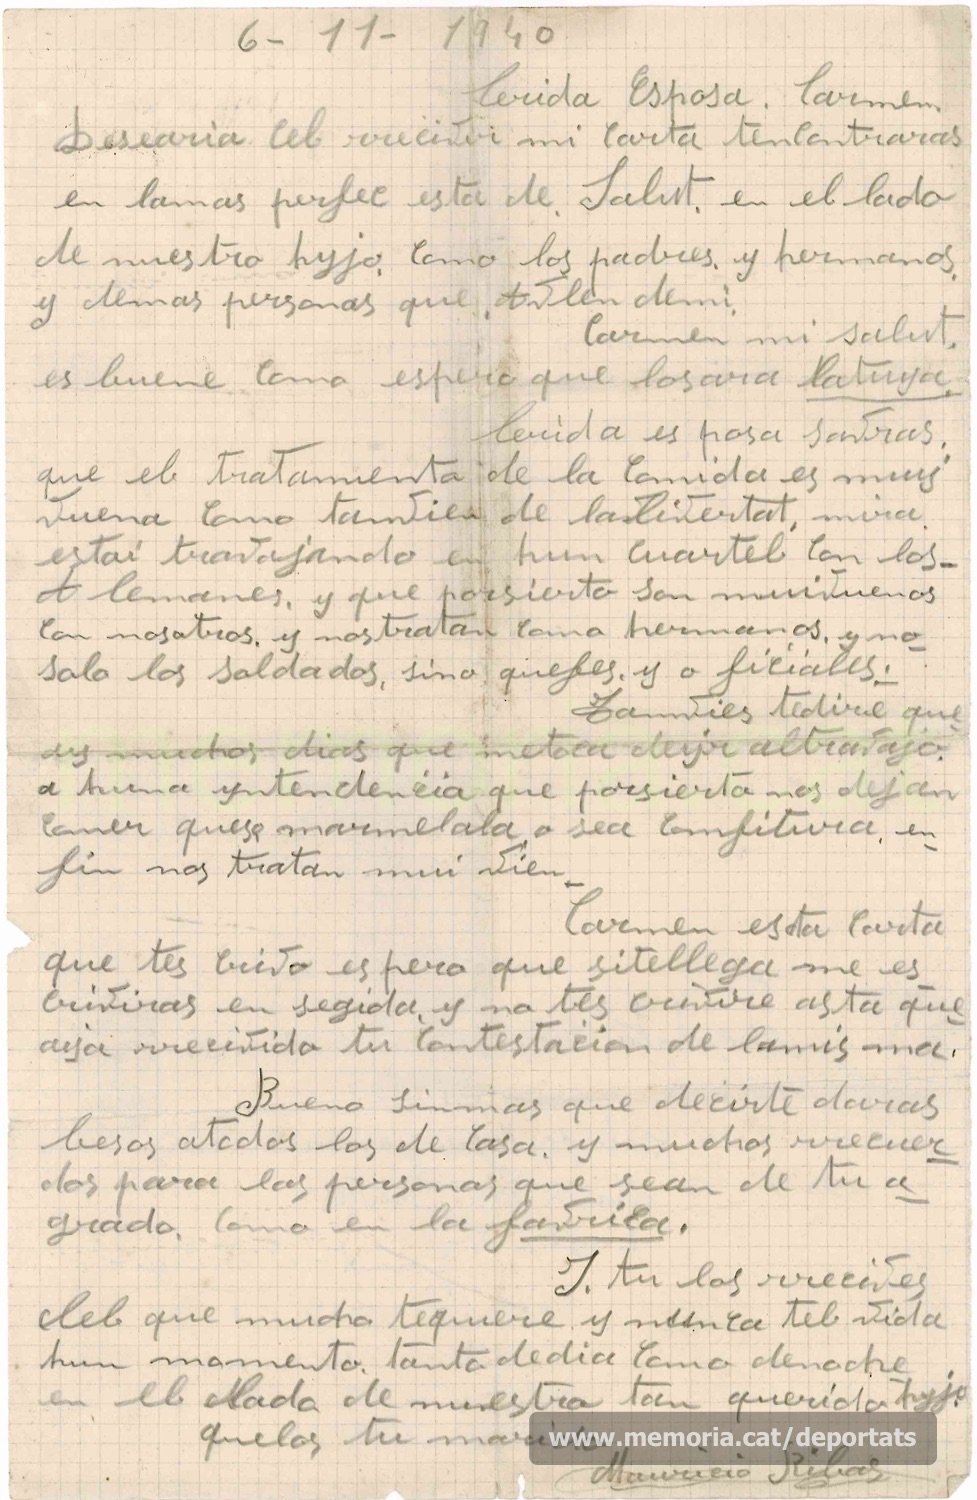 6- 11- 1940
Cerida Esposa. Carmen.
Desearia Cel rrecivir mi Carta tenContraras
en lamas perfec esta de. Salut. en el lado
de nuestro hyjo. Como los padres. y hermanos.
y demas personas que. Avlen demi.
Carmen mi salut.
es buene Como espero que losara latuya.
Cerida es posa savras.
que el tratamienta de la Comida es mui
vuena Como tamvien de laLivertat, mira.
estai travajando en hun Cuartel Con los-
Alemanes. y que porsierto son muivuenos
Con nosotros. y nostratan Como hermanos. y no
solo los soldados, sino quefes. y o ficiales.-
Tamvies tedire que
ay muchos dias que metoca dejir altravajo.
a huna yntendencia que porsierto nos dejan
Comer queso marmelala, o sea Comfitura. en-
fin nos tratan mui vien-
Carmen esta Carta
que tes Crivo espero que sitellega me es
Criviras en segida. y no tes Crivire asta que
aija rrecivido tu Contestacion de lamis ma.
Bueno sinmas que decirte daras
besos atodos los de Casa. y muchos rrecuer-
dos para las personas que sean de tu a-
grado. Como en la favrica.
I. tu los rrecives
del que mucho tequere y nunca tel vida
hun momento. tanto dedia Como denoche
en el llado de nuestro tan querido hyjo
quelos tu
www.memoria.cat/deportats
Mauricio Ribas